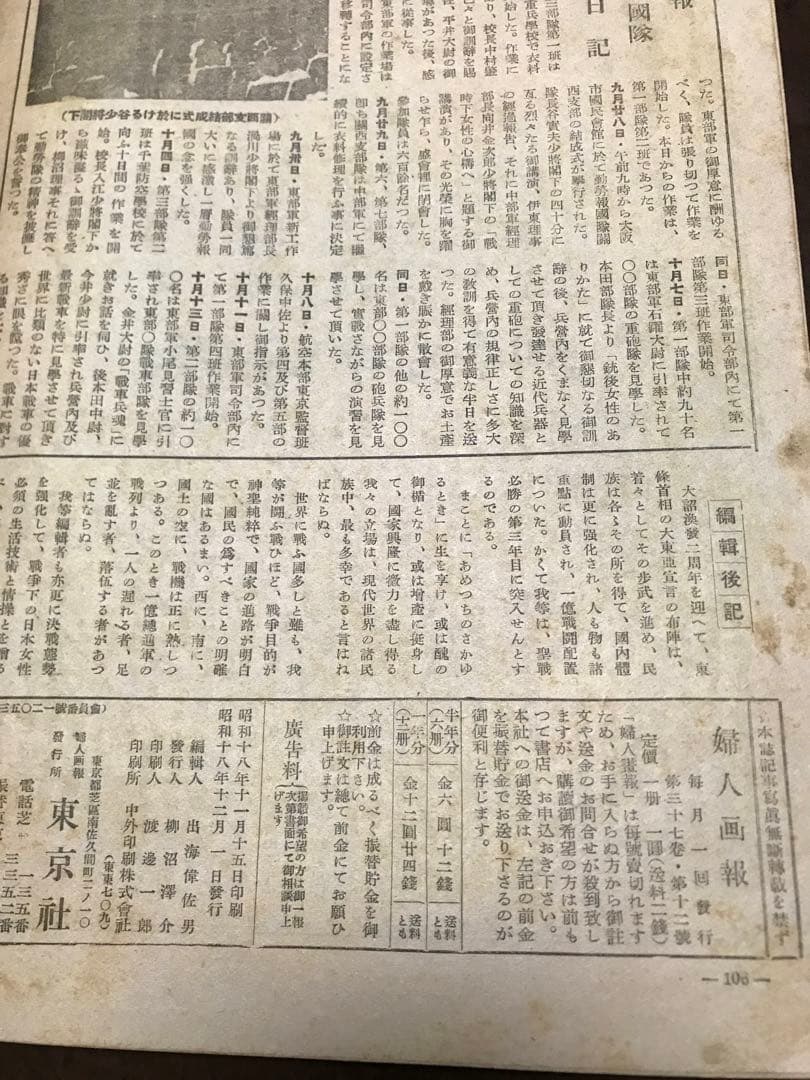 報
國隊
日記
三部隊第一班は
重兵學校で衣料
始した。作業に
り、校長中村肇
々と御訓辭を賜
、平井大尉の御
があつた後、感
に從事した。
東部軍の作業場は
司令部內に設定さ
移轉することにな
(下閣將少谷るけ於に式成結部支西關)
つた。東部軍の御厚意に酬ゆる
べく、隊員は張り切つて作業を
開始した。本日からの作業は、
第一部隊第二班であつた。
九月廿八日・午前九時から大阪
市國民會館に於て勤勞報國隊關
西支部の結成式が擧行された。
隊長谷實夫少將閣下の四十分に
亙る烈々たる御講演、伊東理事
の經過報告、それに中部軍經理
部長向井金次郎少將閣下の「戰
時下女性の心構へ」と題する御
講演があり、その光榮に胸を躍
らせ乍ら、盛會裡に閉會した。
參加隊員は六百餘名だつた。
九月廿九日・第六、第七部隊、
卽ち關西支部隊は中部軍にて繼
續的に衣料修理を行ふ事に決定
した。
九月卅日・東部軍新工作
場に於て東部軍經理部長
渦川少將閣下より御懇篤
なる訓辭あり、隊員一同
大いに感激し一層勤勞報
國の念を強くした。
十月四日・第三部隊第二
班は千葉防空學校に於て
向ふ十日間の作業を開
始。校長入江少將閣下か
ら滋味溢るゝ御訓辭を受
け、柳沼理事それに答へ
て勤勞隊の精神を披瀝し
御奉公を誓つた。
同日・東部軍司令部內にて第一
部隊第三班作業開始。
十月七日・第一部隊中約九十名
は東部軍石躍大尉に引率されて
〇〇部隊の重砲隊を見學した。
本田部隊長より「銃後女性のあ
りかた」に就て御懇切なる御訓
辭の後、兵營內をくまなく見學
させて頂き發達せる近代兵器と
しての重砲についての知識を深
め、兵營內の規律正しさに多大
の敎訓を得て有意義な半日を送
つた。經理部の御厚意でお土產
を戴き賑かに散會した。
同日・第一部隊の他の約一〇〇
名は東部〇〇部隊の砲兵隊を見
學し、實戰さながらの演習を見
學させて頂いた。
十月八日・航空本部東京監督班
久保中佐より第四及び第五部の
作業に關し御指示があつた。
十月十一日・東部軍司令部內に
て第一部隊第四班作業開始。
十月十三日・第二部隊の約一〇
〇名は東部軍小尾見習士官に引
率され東部〇隊戰車部隊を見學
した。金井大尉の「戰車兵魂」に
就きお話を伺ひ、後本田中尉、
今井少尉に引率され兵營內及び
最新戰車を特に見學させて頂き
世界に比類のない日本戰車の優
秀さに眼を瞠つた。戰車に對す
編輯後記
大詔渙發二周年を迎へて、東
條首相の大東亞宣言の布陣は、
着々としてその步武を進め、民
族は各〻その所を得て、國內體
制は更に强化され、人も物も諸
重點に動員され、一億戰鬪配置
についた。かくて我等は、聖戰
必勝の第三年目に突入せんとす
るのである。
まことに「あめつちのさかゆ
るとき」に生を享け、或は醜の
御楯となり、或は增產に挺身し
て、國家興隆に微力を盡し得る
我々の立場は、現代世界の諸民
族中、最も多幸であると言はね
ばならぬ。
世界に戰ふ國多しと雖も、我
等が鬪ふ戰ひほど、戰爭目的が
神聖純粹で、國家の進路が明白
で、國民の爲すべきことの明確
な國はあるまい。西に、南に、
國土の空に、戰機は正に熟しつ
つある。このとき一億總進軍の
戰列より、一人の遲れる者、足
並を亂す者、落伍する者があつ
てはならぬ。
我等編輯者も亦更に決戰態勢
を强化して、戰爭下の日本女性
必須の生活技術と情操とを贈る
本誌記事寫眞無斷轉載を禁ず
婦人画報
每月一回發行
第三十七卷・第十二號
定價 一册 一圓(送料二錢)
「婦人畫報」は每號賣切れます
ため、お手に入らぬ方から御註
文や送金のお問合せが殺到致し
ますが、購讀御希望の方は前も
つて書店へお申込おき下さい。
本社への御送金は、左記の前金
を振替貯金でお送り下さるのが
御便利と存じます。
半年分(六册) 金六圓十二錢 送料とも
一年分(十二册) 金十二圓廿四錢 送料とも
☆前金は成るべく振替貯金を御
利用下さい。
☆御註文は總て前金にてお願ひ
申上げます。
廣告料 揭載御希望の方は御一報
次第書面にて御相談申上
げます
昭和十八年十一月十五日印刷
昭和十八年十二月一日發行
編輯人 出海偉佐男
發行人 柳沼澤介
印刷人 渡邊一郎
印刷所 中外印刷株式會社
(東東七〇九)
東京都芝區南佐久間町二ノ一〇
婦人画報
發行所 東京社
電話芝 一三五番
三三五二番
(會員番號一二〇五三
— 106 —